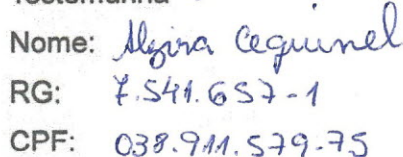 Testemunha
Nome: Alzira Cequinel
RG: 7.541.657-1
CPF: 038.911.579-75